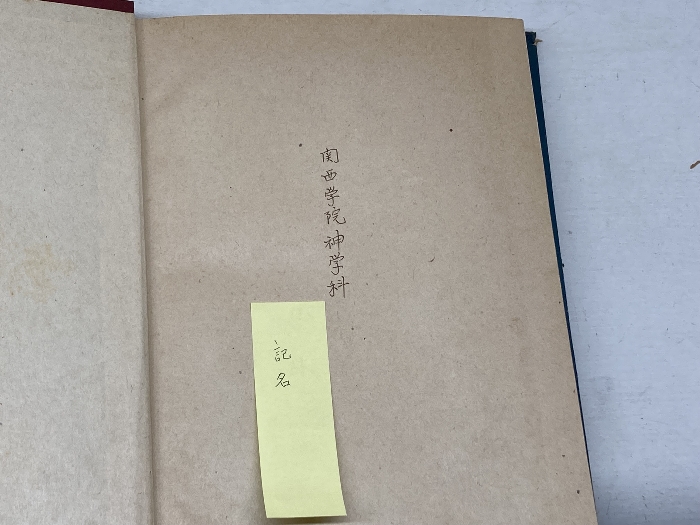 関西学院神学科
記名